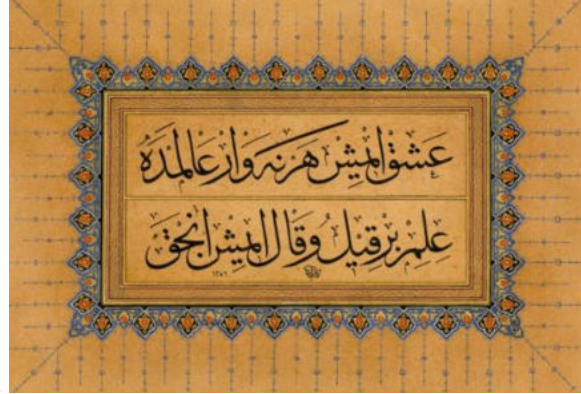 عشق ایمش هر نه وار عالمده
علم بر قیل و قال ایمش انجق